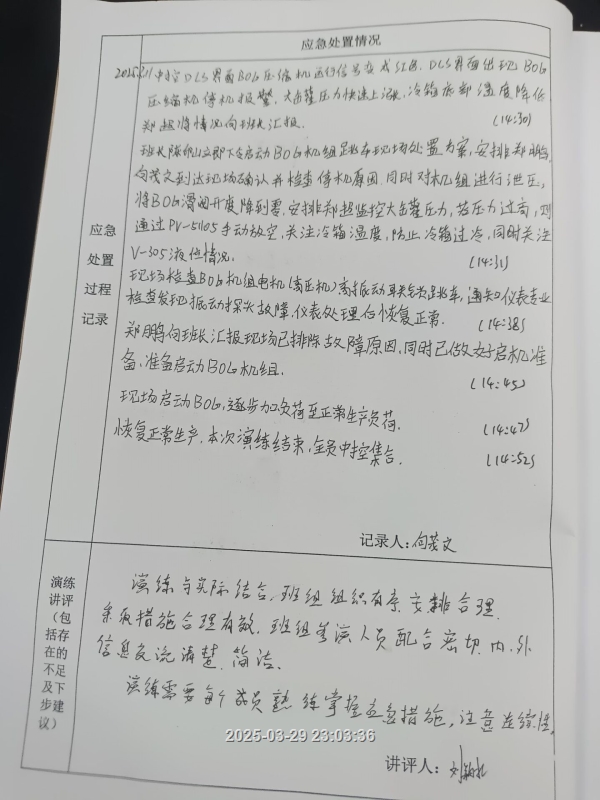 应急处置情况
中控DCS界面BOG压缩机运行信号变成红色，DCS界面出现BOG
压缩机停机报警，大储罐压力快速上涨，冷箱底部温度降低
郑超将情况向班长汇报。 (14:30)
班长陈立即下令启动BOG机组跳车现场处置方案，安排郑鹏，
向茂文到达现场确认并检查停机原因，同时对机组进行泄压，
将BOG滑阀开度降到零，安排郑超监控大储罐压力，若压力过高，则
通过PV-51105手动放空，关注冷箱温度，防止冷箱过冷，同时关注
V-305液位情况。 (14:31)
现场检查BOG机组电机（高压机）高振动联锁跳车，通知仪表专业
检查发现振动探头故障，仪表处理后恢复正常。 (14:38)
郑鹏向班长汇报现场已排除故障原因，同时已做好启机准
备，准备启动BOG机组。 (14:45)
现场启动BOG，逐步加负荷至正常生产负荷。 (14:47)
恢复正常生产，本次演练结束，全员中控集合。 (14:52)
应急
处置
过程
记录
记录人：向茂文
演练
讲评
（包
括存
在的
不足
及下
步建
议）
演练与实际结合，班组组织有序，安排合理
采取措施合理有效，班组参演人员配合密切，内、外
信息交流清楚、简洁。
演练需要每个成员熟练掌握应急措施，注意连续性。
2025-03-29 23:03:36
讲评人：刘